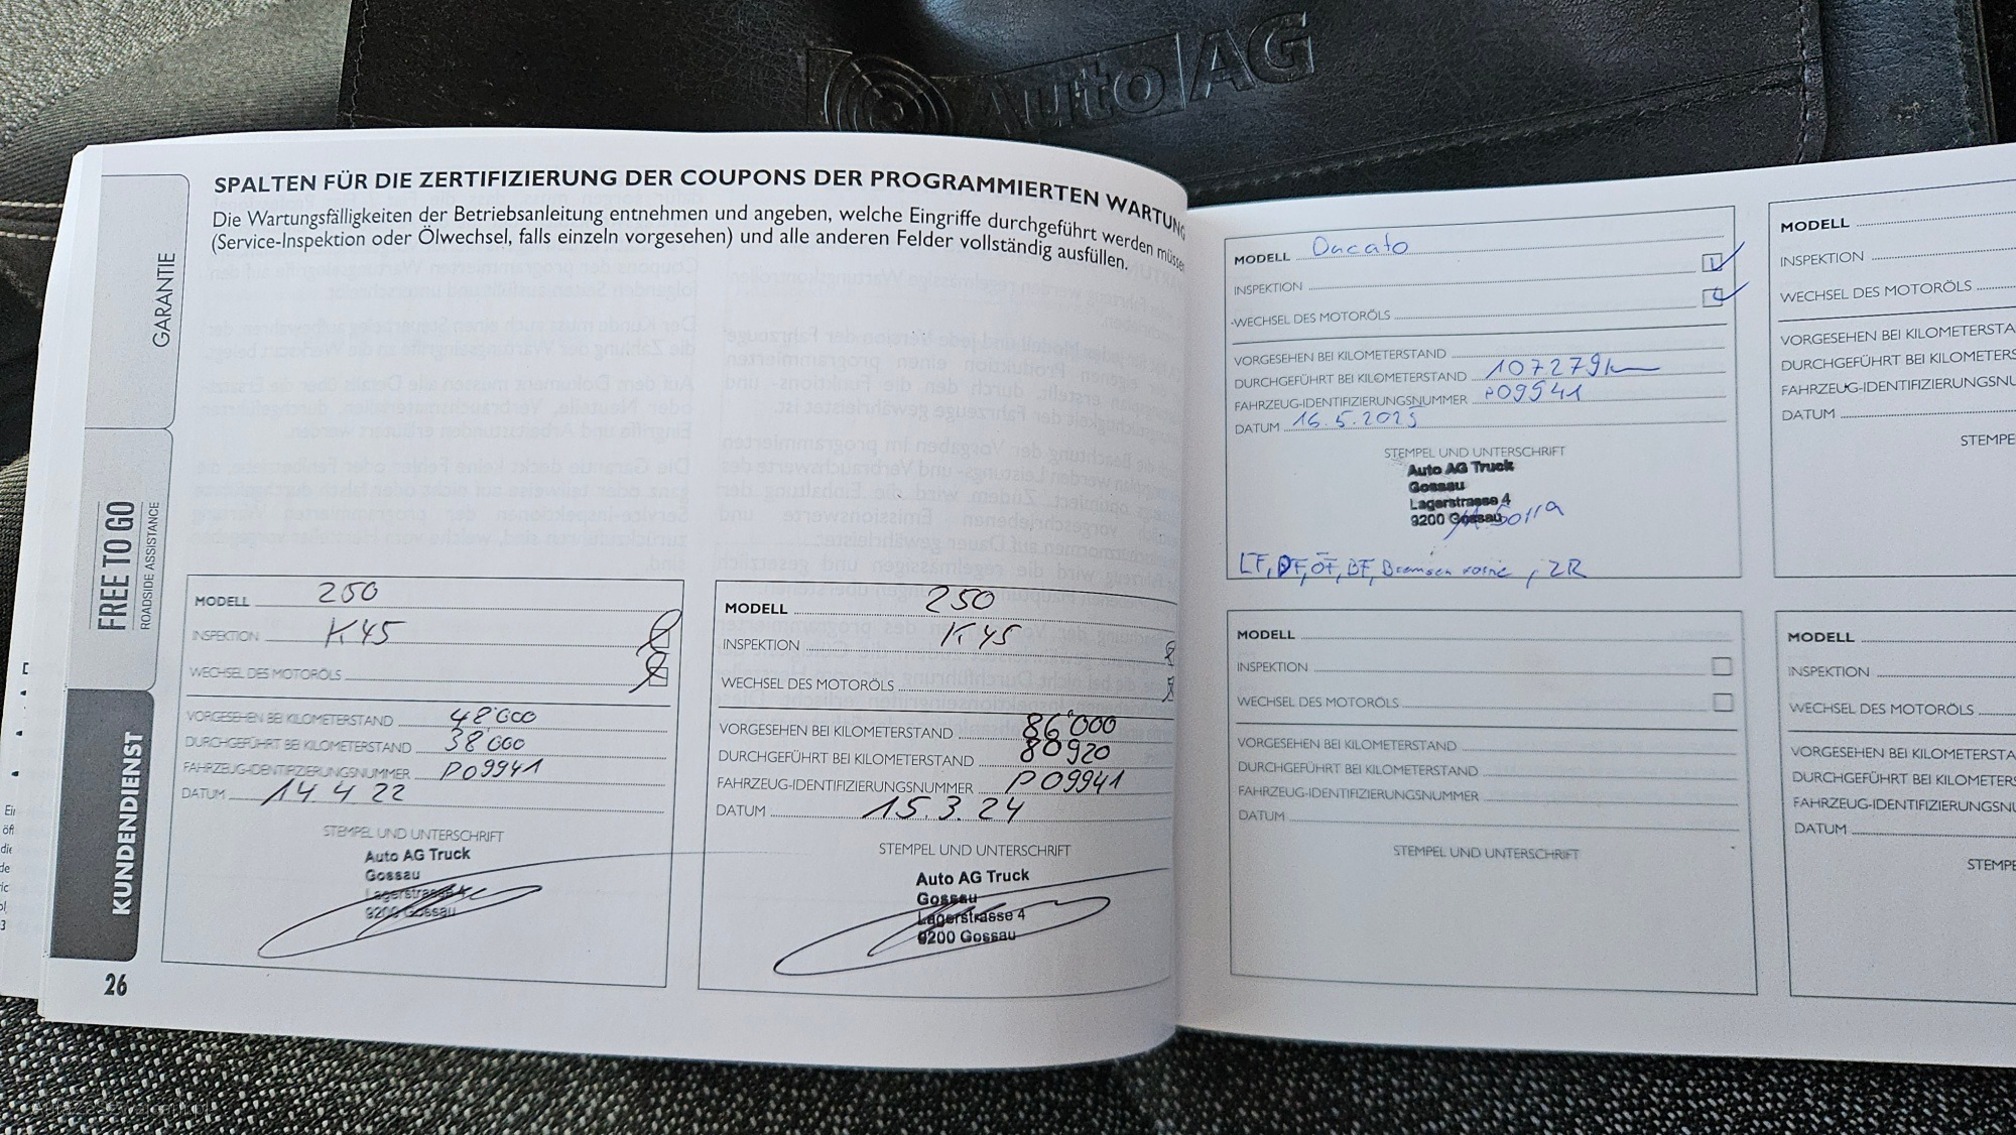 Auto AG
SPALTEN FÜR DIE ZERTIFIZIERUNG DER COUPONS DER PROGRAMMIERTEN WARTUNG
Die Wartungsfälligkeiten der Betriebsanleitung entnehmen und angeben, welche Eingriffe durchgeführt werden müssen
(Service-Inspektion oder Ölwechsel, falls einzeln vorgesehen) und alle anderen Felder vollständig ausfüllen.
GARANTIE
FREE TO GO
ROADSIDE ASSISTANCE
KUNDENDIENST
26
MODELL 250
INSPEKTION K45
WECHSEL DES MOTORÖLS
VORGESEHEN BEI KILOMETERSTAND 48'000
DURCHGEFÜHRT BEI KILOMETERSTAND 38'000
FAHRZEUG-IDENTIFIZIERUNGSNUMMER P09941
DATUM 14.4.22
STEMPEL UND UNTERSCHRIFT
Auto AG Truck
Gossau
Lagerstrasse 4
9200 Gossau
MODELL 250
INSPEKTION K45
WECHSEL DES MOTORÖLS
VORGESEHEN BEI KILOMETERSTAND 86'000
DURCHGEFÜHRT BEI KILOMETERSTAND 80920
FAHRZEUG-IDENTIFIZIERUNGSNUMMER P09941
DATUM 15.3.24
STEMPEL UND UNTERSCHRIFT
Auto AG Truck
Gossau
Lagerstrasse 4
9200 Gossau
MODELL Ducato
INSPEKTION
WECHSEL DES MOTORÖLS
VORGESEHEN BEI KILOMETERSTAND
DURCHGEFÜHRT BEI KILOMETERSTAND 107279km
FAHRZEUG-IDENTIFIZIERUNGSNUMMER P09941
DATUM 16.5.2025
STEMPEL UND UNTERSCHRIFT
Auto AG Truck
Gossau
Lagerstrasse 4
9200 Gossau
LF, DF, ÖF, BF, Bremsen vorne, ZR
MODELL
INSPEKTION
WECHSEL DES MOTORÖLS
VORGESEHEN BEI KILOMETERSTAND
DURCHGEFÜHRT BEI KILOMETERSTAND
FAHRZEUG-IDENTIFIZIERUNGSNUMMER
DATUM
STEMPEL UND UNTERSCHRIFT
MODELL
INSPEKTION
WECHSEL DES MOTORÖLS
VORGESEHEN BEI KILOMETERSTA
DURCHGEFÜHRT BEI KILOMETERS
FAHRZEUG-IDENTIFIZIERUNGSNU
DATUM
STEMPE
MODELL
INSPEKTION
WECHSEL DES MOTORÖLS
VORGESEHEN BEI KILOMETERSTA
DURCHGEFÜHRT BEI KILOMETERS
FAHRZEUG-IDENTIFIZIERUNGSNU
DATUM
STEMPE